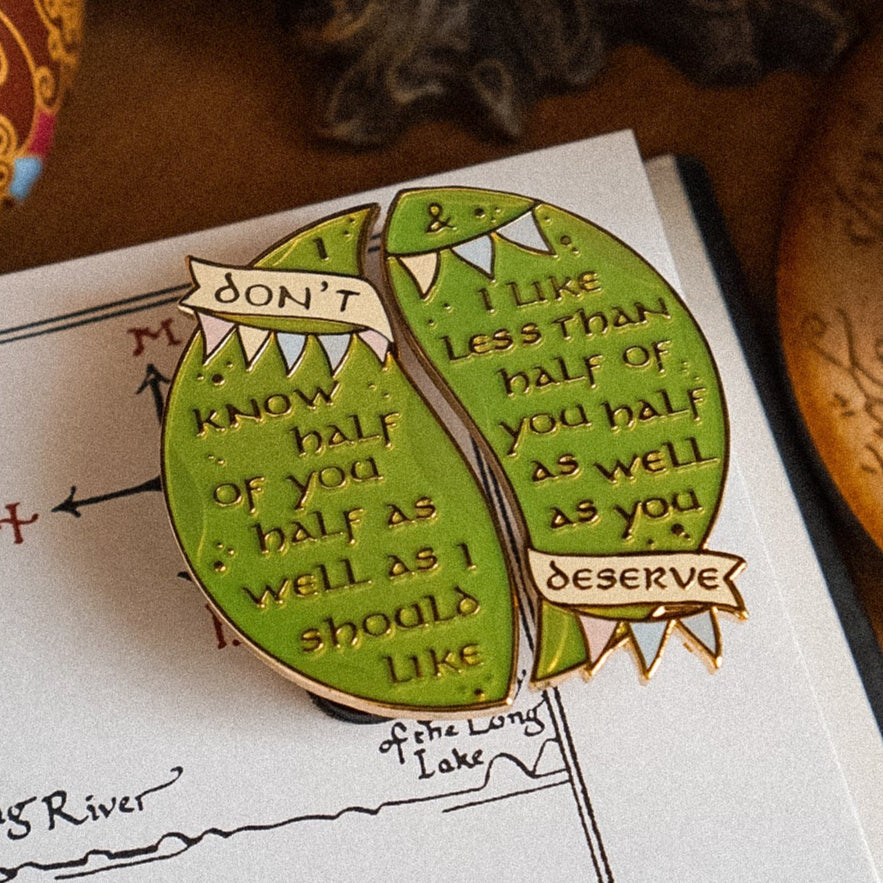 I
DON'T
KNOW
HALF
OF YOU
HALF AS
WELL AS I
SHOULD
LIKE
&
I LIKE
LESS THAN
HALF OF
YOU HALF
AS WELL
AS YOU
DESERVE
M
of the Long
Lake
River